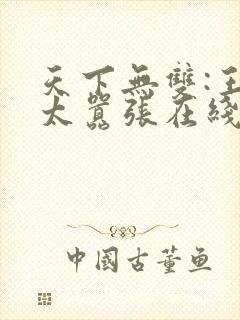 天下無雙:王
太囂張在綫
中國古董鱼